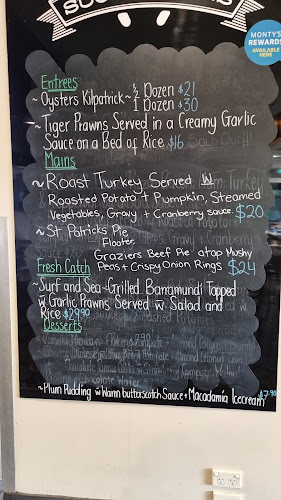 MONTY'S
REWARDS
AVAILABLE
HERE
Entrees
~ Oysters Kilpatrick ~ ½ Dozen $21
1 Dozen $30
~ Tiger Prawns Served in a Creamy Garlic
Sauce on a Bed of Rice $16
Mains
~ Roast Turkey Served W
Roasted Potato + Pumpkin, Steamed
Vegetables, Gravy + Cranberry Sauce. $20
~ St Patricks Pie
Floater
Graziers Beef Pie atop Mushy
Peas + Crispy Onion Rings $24
Fresh Catch
~ Surf and Sea ~ Grilled Barramundi Topped
w Garlic Prawns Served w Salad and
Rice $29.90
Desserts
~ Plum Pudding w Warm butterscotch Sauce + Macadamia Icecream $7.90